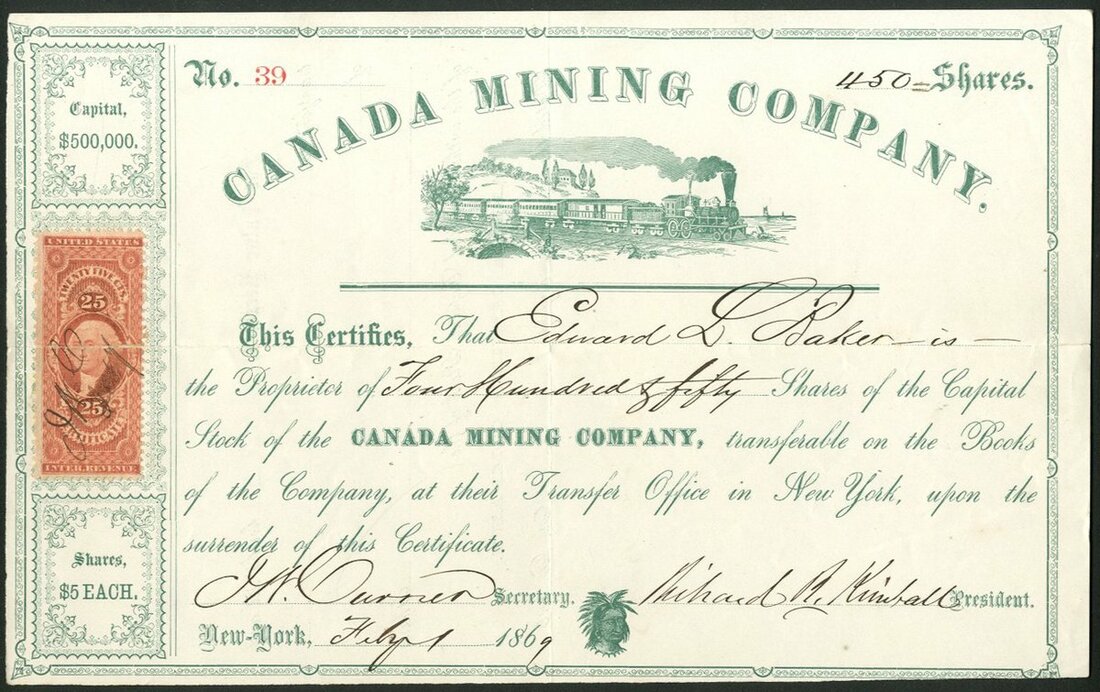 No. 39
450= Shares.
CANADA MINING COMPANY.
Capital,
$500,000.
UNITED STATES
TWENTY FIVE CTS.
25
25
CERTIFICATE
INTER. REVENUE
Shares,
$5 EACH.
This Certifies, That Edward L. Baker - is -
the Proprietor of Four Hundred & fifty Shares of the Capital
Stock of the CANADA MINING COMPANY, transferable on the Books
of the Company, at their Transfer Office in New York, upon the
surrender of this Certificate.
J.W. Currier Secretary. Richard R. Kimball President.
New-York, Feby 1 1869